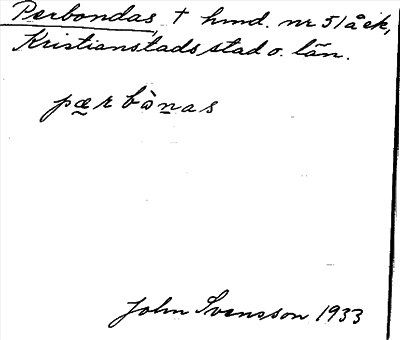 Perbondas, † hmd. nr 51 åek,
Kristianstads stad o. län.
pærbònas
John Svensson 1933